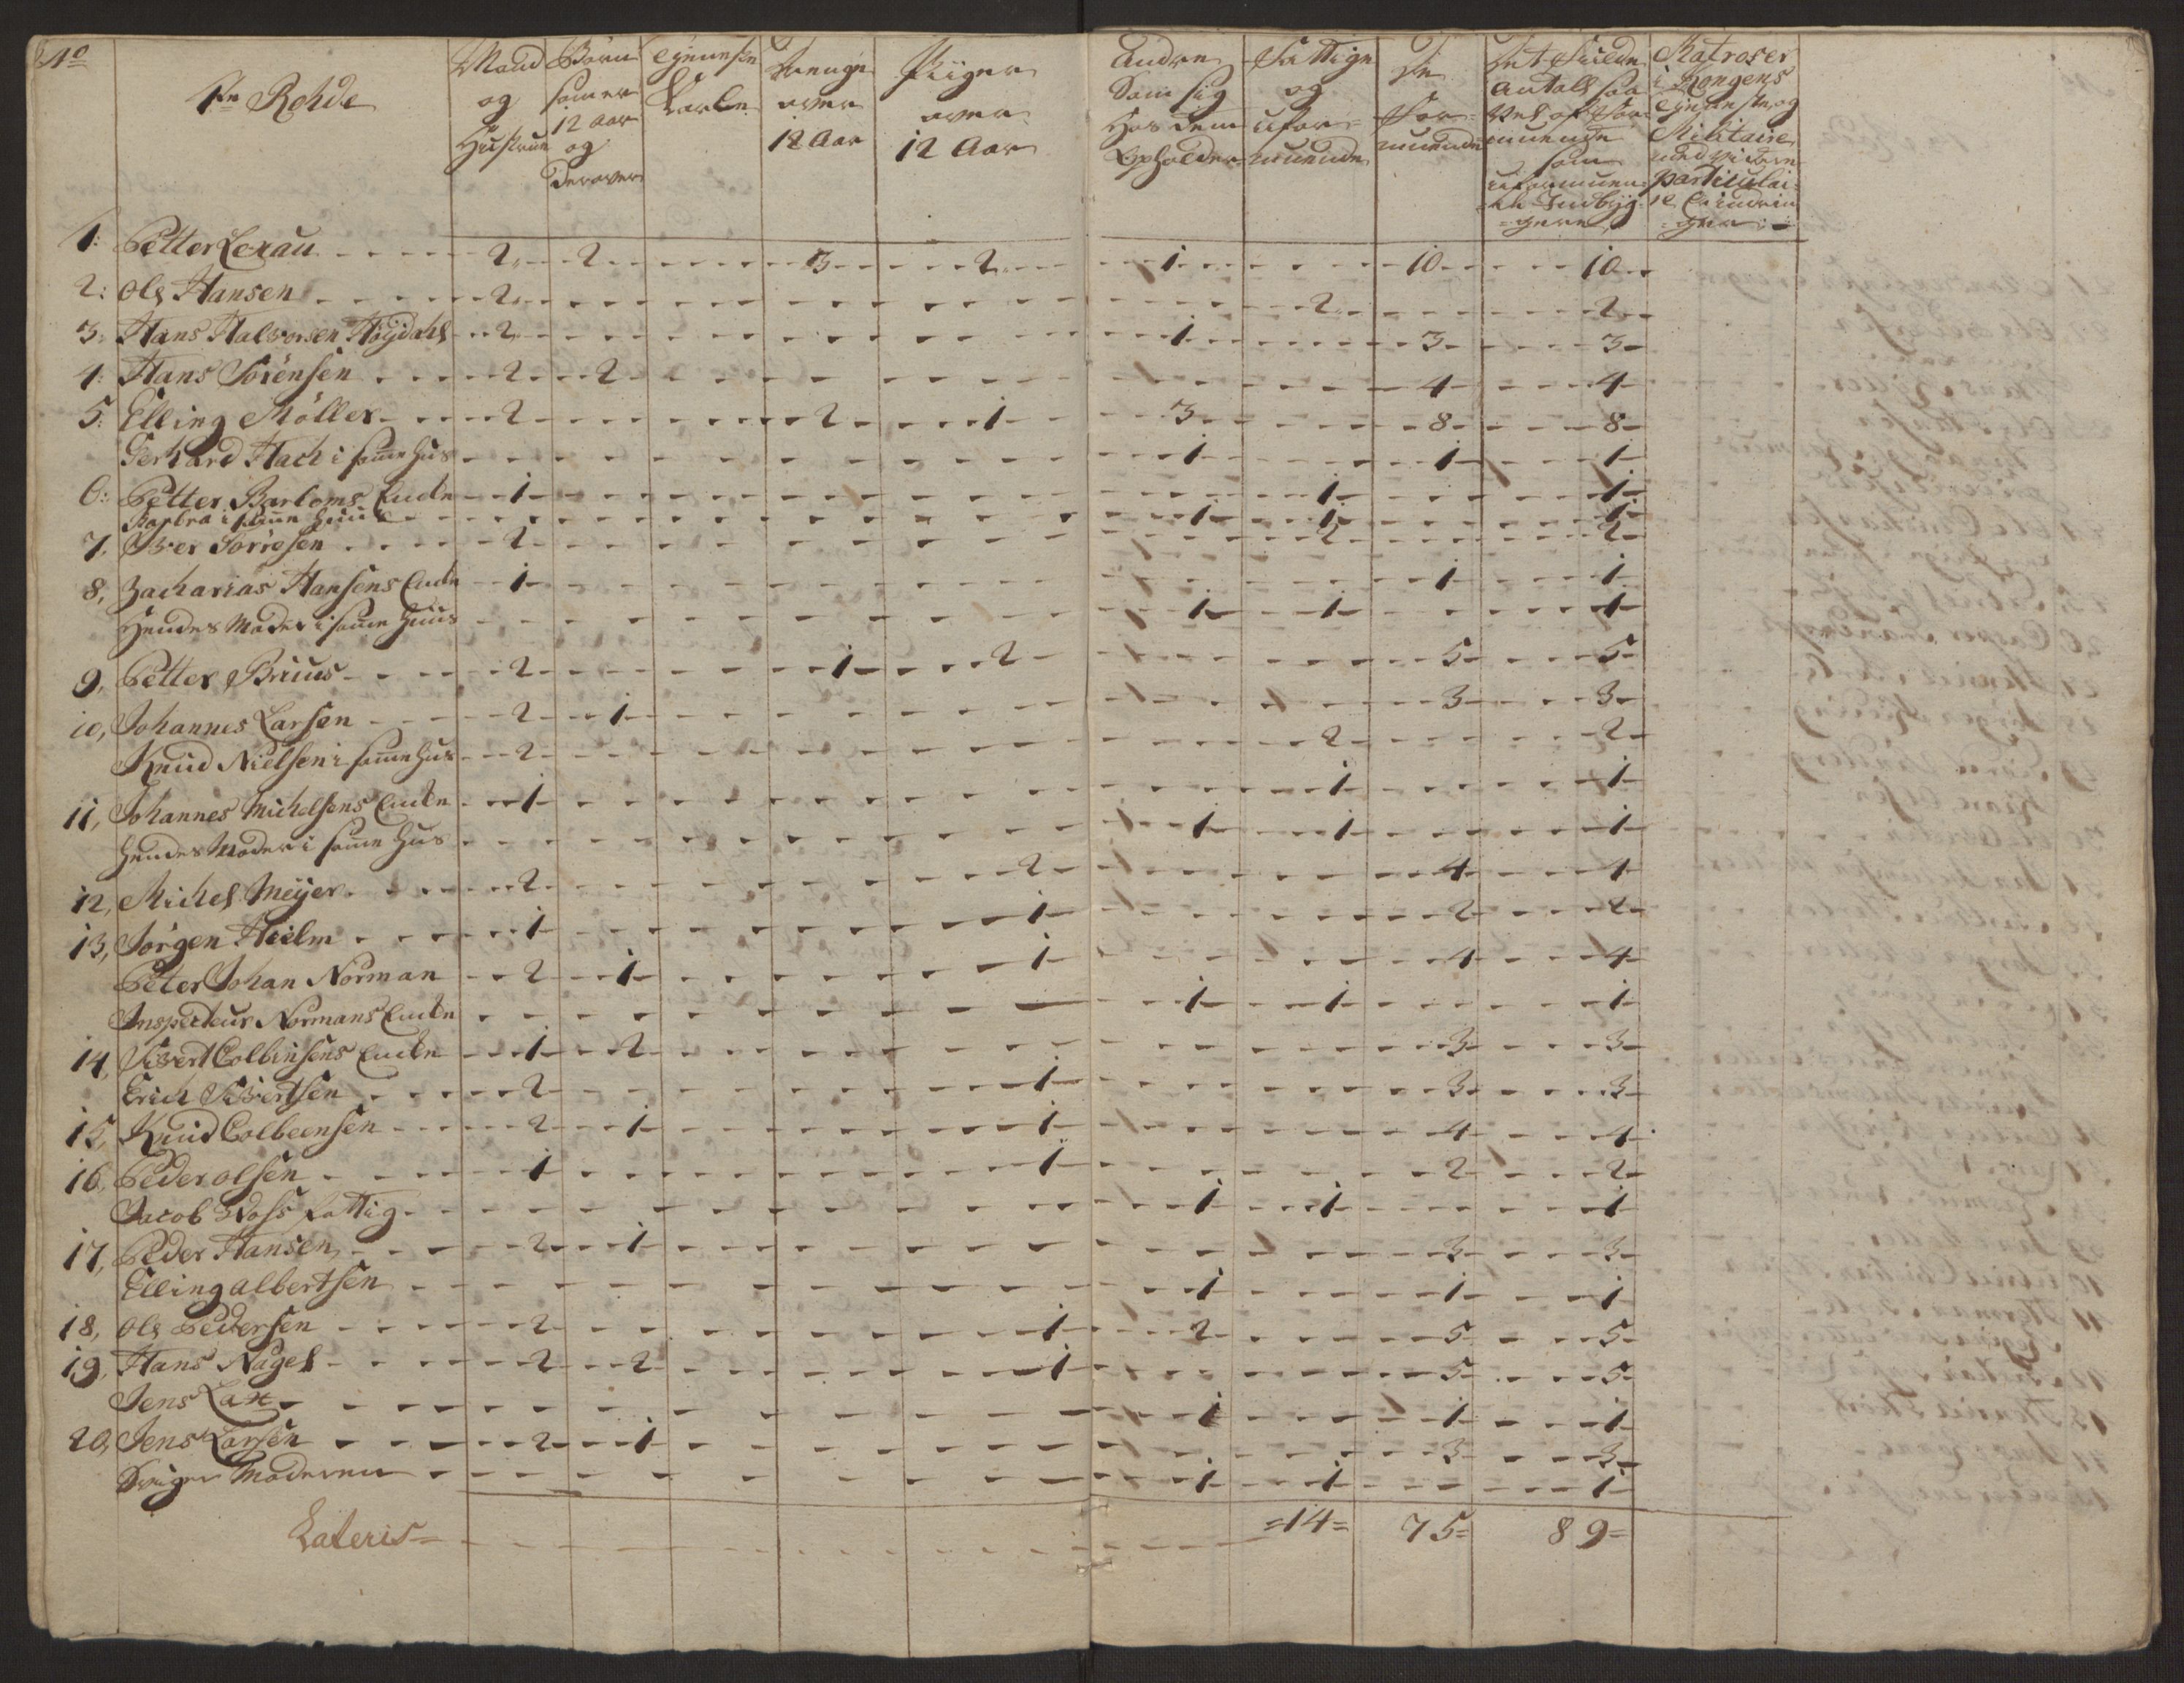 No
1te Rohde
Mand og Hustrue
Börn som er 12 aar og derover
Tjeneste Karle
Drenge over 12 Aar
Piiger over 12 Aar
Andre Som sig Hos dem Opholder
Fattige og ufor=muende
De For=muende
Det Fulde Antall saa Vel af Formuende som uformuen=de Indbyg=gere
Matroser i Kongens Tjeneste, og Militaire
1: Petter Lexau - 2 - 2 - 3 - 2 - 1 - 10 - 10
2: Ole Hansen - 2 - 2 - 2
3: Hans Halvorsen Høydahl - 2 - 1 - 3 - 3
4: Hans Sörensen - 2 - 2 - 4 - 4
5: Elling Möller - 2 - 2 - 1 - 3 - 8 - 8
Gerhard Hach i samme Hus - 1 - 1 - 1
6: Petter Bartoms Encke - 1 - 1 - 1
Barbra i samme Huus - 1 - 1 - 1
7. Iver Sörresen - 2 - 2 - 2
8, Zacharias Hansens Encke - 1 - 1 - 1
Hendes Moder i samme Huus - 1 - 1 - 1
9, Petter Bruus - 2 - 1 - 2 - 5 - 5
10, Johannes Larsen - 2 - 1 - 3 - 3
Knud Nielsen i samme Hus - 2 - 2 - 2
11, Johannes Michelsens Encke - 1 - 1 - 1
Hendes Moder i samme Hus - 1 - 1 - 1
12, Michel Meÿer - 2 - 2 - 4 - 4
13, Jörgen Hielm - 1 - 1 - 2 - 2
Peter Johan Norman - 2 - 1 - 1 - 4 - 4
Inspecteur Normans Encke - 1 - 1 - 1
14, Sivert Colbinsens Encke - 1 - 2 - 3 - 3
Erich Sivertsen - 2 - 1 - 3 - 3
15, Knud Colbeensen - 2 - 1 - 1 - 4 - 4
16, Peder olsen - 1 - 1 - 2 - 2
Jacob Voss fattig - 1 - 1 - 1
17, Peder Hansen - 2 - 1 - 3 - 3
Elling albertsen - 1 - 1 - 1
18, Ole Pedersen - 2 - 1 - 2 - 5 - 5
19, Hans Nagel - 2 - 2 - 1 - 5 - 5
Jens - 1 - 1 - 1
20, Jens Larsen - 2 - 1 - 3 - 3
Sviger Moderen - 1 - 1 - 1
Lateris= =14= 75= 89=